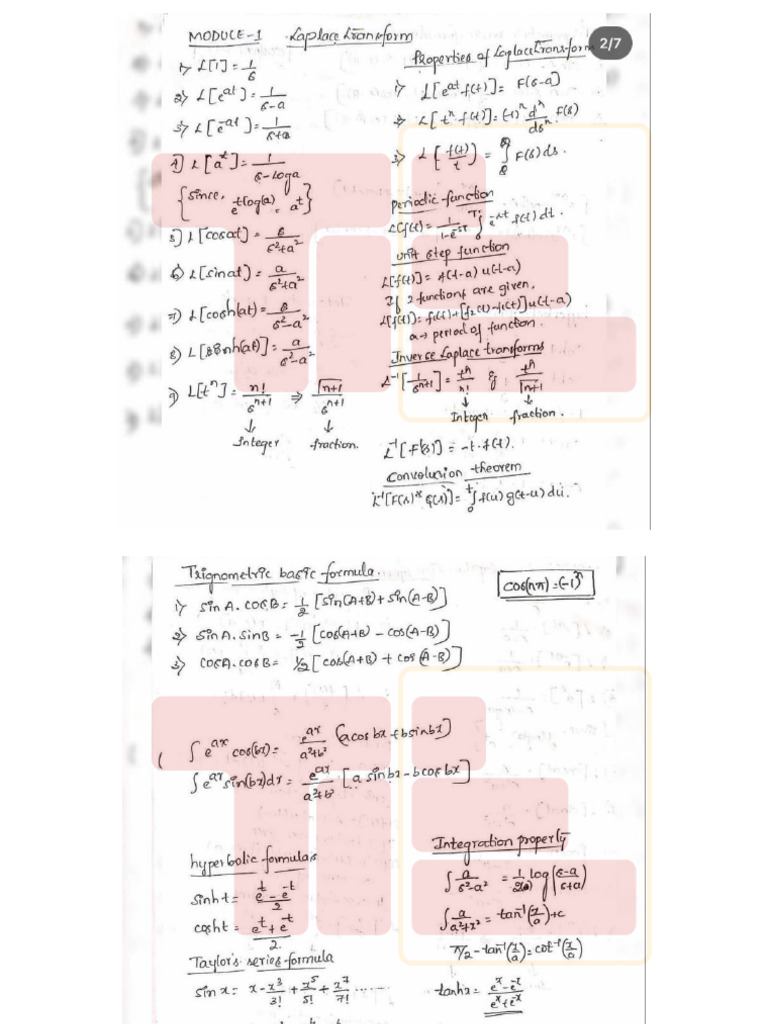 MODULE-1 Laplace Transform
2/7
1) L[1] = 1/s
2) L[e^at] = 1/(s-a)
3) L[e^-at] = 1/(s+a)
4) L[a^t] = 1/(s-loga)
{since, e^tlog(a) = a^t}
5) L[cosat] = s/(s²+a²)
6) L[sinat] = a/(s²+a²)
7) L[cosh(at)] = s/(s²-a²)
8) L[sinh(at)] = a/(s²-a²)
9) L[t^n] = n!/s^(n+1) ⇒ Γ(n+1)/s^(n+1)
↓ ↓
Integer fraction.
Properties of Laplace Transform
1) L[e^at f(t)] = F(s-a)
2) L[t^n f(t)] = (-1)^n d^n/ds^n F(s)
3) L[f(t)/t] = ∫_s^∞ F(s) ds.
Periodic function
L(f(t)) = 1/(1-e^-sT) ∫_0^T e^-st f(t) dt.
unit step function
L[f(t)] = f(t-a) u(t-a)
If 2 functions are given,
L[f(t)] = f1(t) + [f2(t) - f1(t)] u(t-a)
a → period of function.
Inverse Laplace transforms
L^-1[1/s^(n+1)] = t^n/n! & t^n/Γ(n+1)
↓ ↓
Integer fraction.
L^-1[F'(s)] = -t.f(t).
Convolusion theorem
L^-1[F(s)*G(s)] = ∫_0^t f(u) g(t-u) du.
Trignometric basic formula.
cos(nπ) = (-1)^n
1) sinA.cosB = 1/2 [sin(A+B) + sin(A-B)]
2) sinA.sinB = -1/2 [cos(A+B) - cos(A-B)]
3) cosA.cosB = 1/2 [cos(A+B) + cos(A-B)]
∫e^ax cos(bx) = e^ax/(a²+b²) (acosbx + bsinbx)
∫e^ax sin(bx)dx = e^ax/(a²+b²) [a sinbx - bcosbx]
hyperbolic formulas
sinht = (e^t - e^-t)/2
cosht = (e^t + e^-t)/2.
Taylor's series formula
sinx = x - x³/3! + x⁵/5! + x⁷/7! ......
Integration property
∫ a/(s²-a²) = 1/2(a) log((s-a)/(s+a))
∫ a/(a²+x²) = tan^-1(x/a) + c
π/2 - tan^-1(x/a) = cot^-1(x/a)
tanhx = (e^x - e^-x)/(e^x + e^-x)